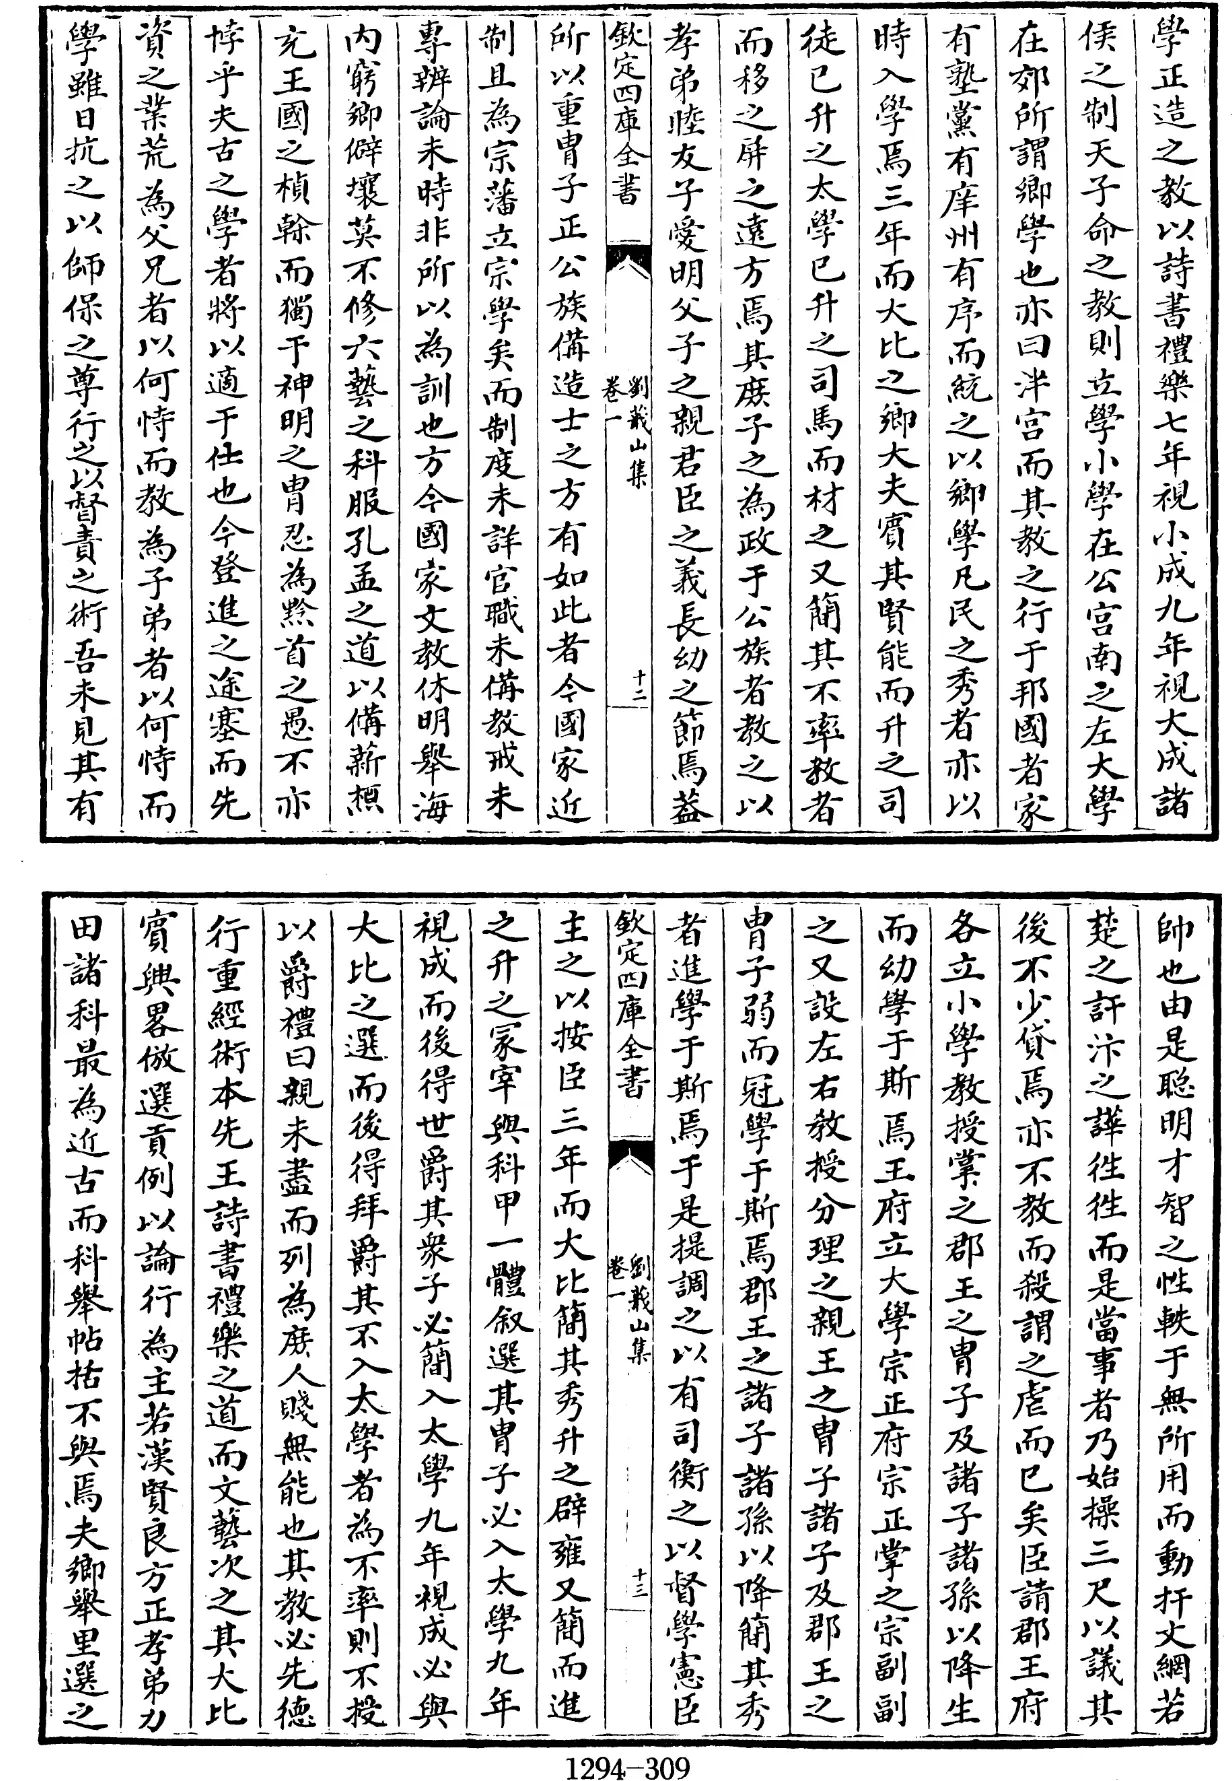 學正造之教以詩書禮樂七年視小成九年視大成諸
侯之制天子命之教則立學小學在公宫南之左大學
在郊所謂鄉學也亦曰泮宫而其教之行于邦國者家
有塾黨有庠州有序而統之以鄉學凡民之秀者亦以
時入學焉三年而大比之鄉大夫賓其賢能而升之司
徒已升之太學已升之司馬而材之又簡其不率教者
而移之屏之遠方焉其庶子之為政于公族者教之以
孝弟睦友子愛明父子之親君臣之義長幼之節焉葢
欽定四庫全書
劉蕺山集
卷一
十二
所以重胄子正公族備造士之方有如此者今國家近
制且為宗藩立宗學矣而制度未詳官職未備教戒未
專辨論未時非所以為訓也方今國家文教休明舉海
内窮鄉僻壤莫不修六藝之科服孔孟之道以備薪槱
充王國之楨榦而獨于神明之胄忍為黔首之愚不亦
悖乎夫古之學者將以適于仕也今登進之途塞而先
資之業荒為父兄者以何恃而教為子弟者以何恃而
學雖日抗之以師保之尊行之以督責之術吾未見其有
帥也由是聰明才智之性軼于無所用而動扞文網若
楚之訐汴之譁徃徃而是當事者乃始操三尺以議其
後不少貸焉亦不教而殺謂之虐而已矣臣請郡王府
各立小學教授掌之郡王之胄子及諸子諸孫以降生
而幼學于斯焉王府立大學宗正府宗正掌之宗副副
之又設左右教授分理之親王之胄子諸子及郡王之
胄子弱而冠學于斯焉郡王之諸子諸孫以降簡其秀
者進學于斯焉于是提調之以有司衡之以督學憲臣
欽定四庫全書
劉蕺山集
卷一
十三
主之以按臣三年而大比簡其秀升之辟雍又簡而進
之升之冡宰與科甲一體叙選其胄子必入太學九年
視成而後得世爵其衆子必簡入太學九年視成必與
大比之選而後得拜爵其不入太學者為不率則不授
以爵禮曰親未盡而列為庶人賤無能也其教必先德
行重經術本先王詩書禮樂之道而文藝次之其大比
賓興畧倣選貢例以論行為主若漢賢良方正孝弟力
田諸科最為近古而科舉帖括不與焉夫鄉舉里選之
1294-309